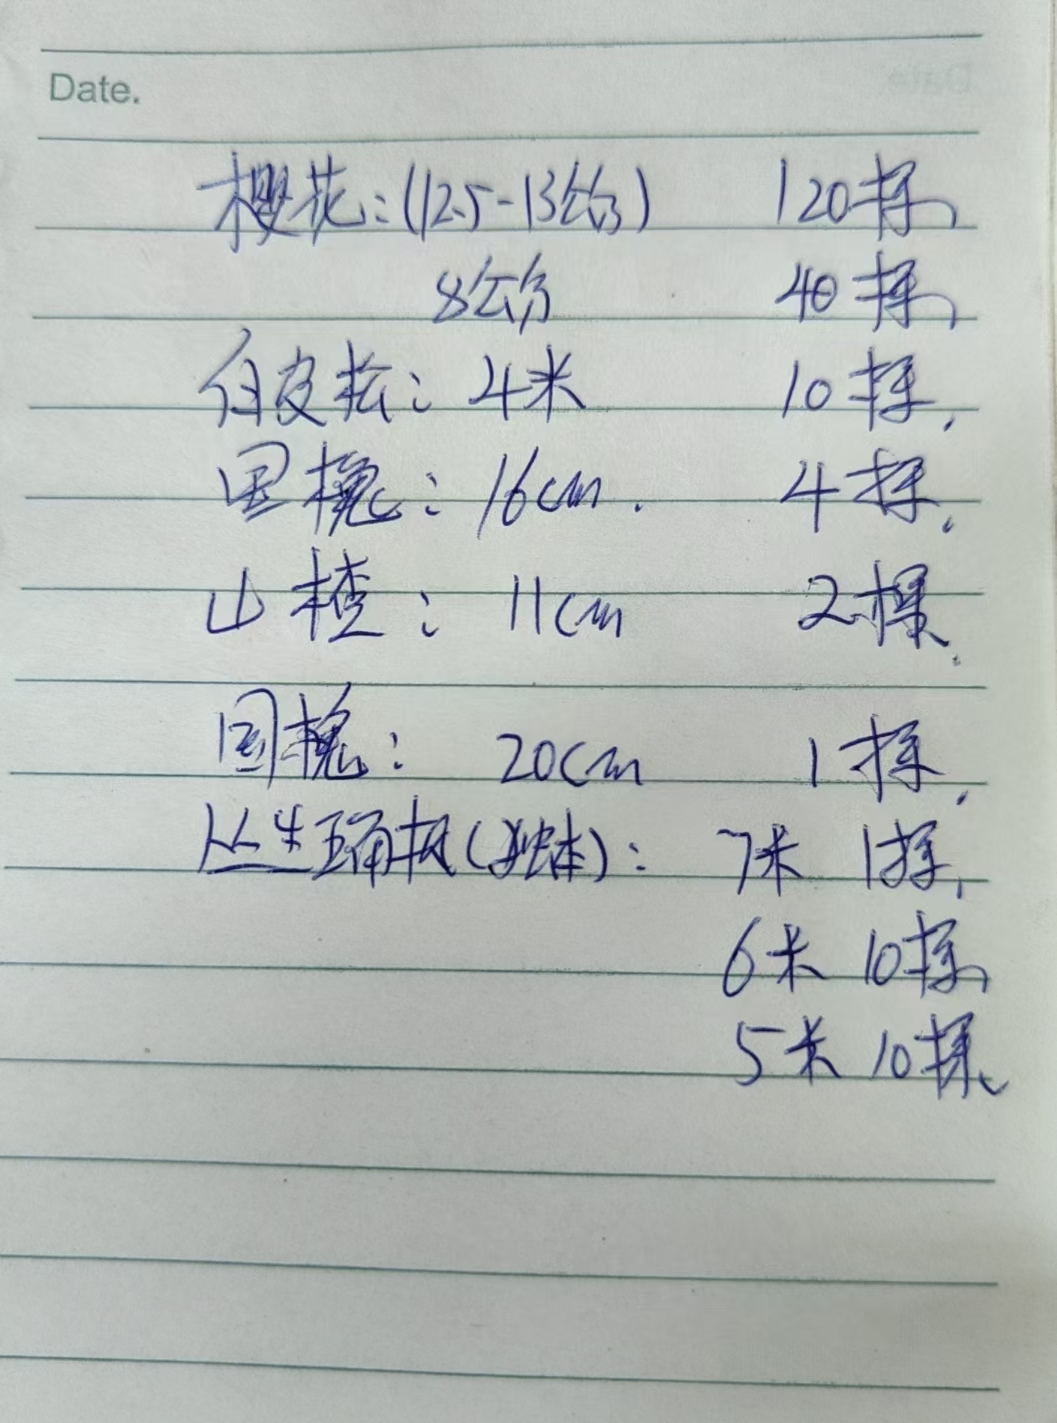 Date.
樱花:(12.5-13公分) 120棵,
8公分 40棵,
白皮松: 4米 10棵,
国槐: 16cm. 4棵,
山楂: 11cm 2棵,
国槐: 20cm 1棵,
丛生五角枫(独本): 7米 1棵,
6米 10棵,
5米 10棵,